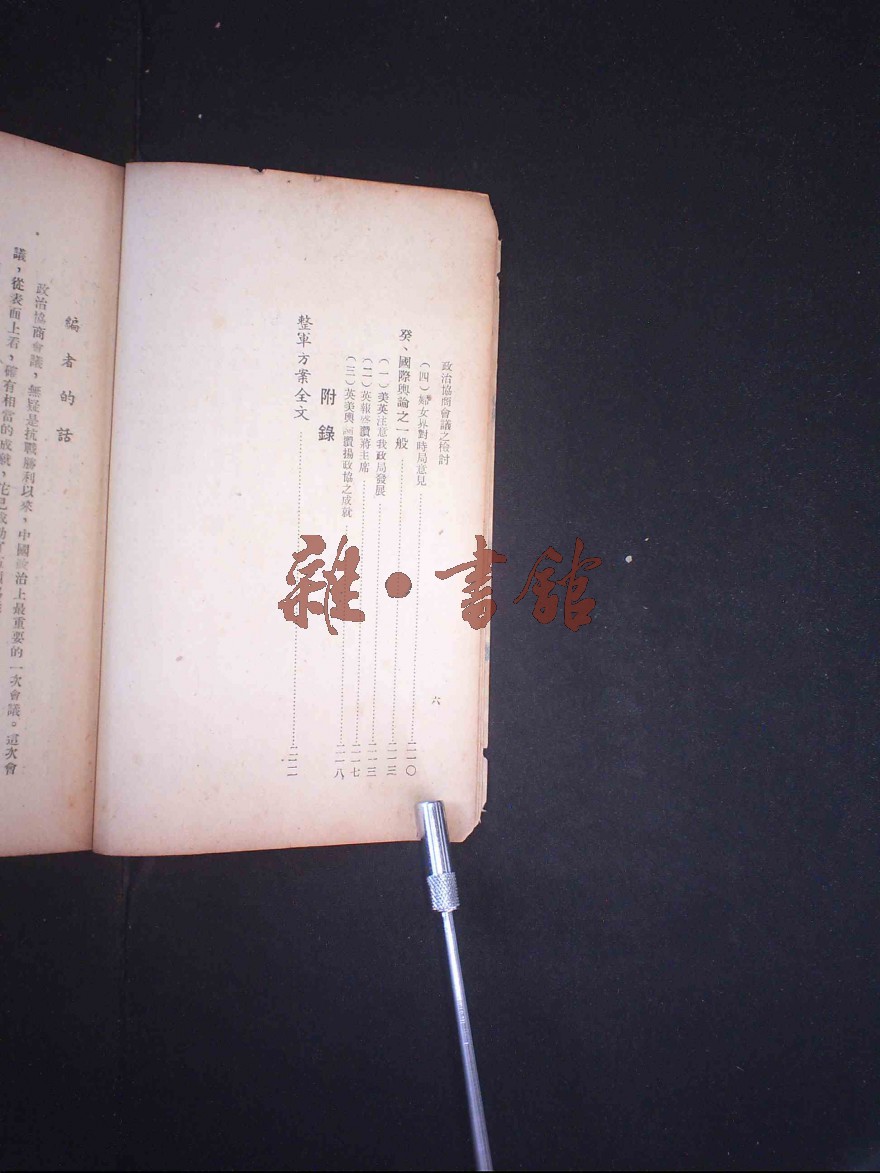 政治協商會議之檢討
六
(四)婦女界對時局意見……二一〇
癸、國際輿論之一般……二一三
(一)美英注意我政局發展……二一三
(二)英報盛讚蔣主席……二一七
(三)英美輿 讚揚政協之成就……二一八
附錄
整軍方案全文……二二一
編者的話
政治協商會議,無疑是抗戰勝利以來,中國 治上最重要的一次會議。這次會
議,從表面上看,確有相當的成就,
雜•書館